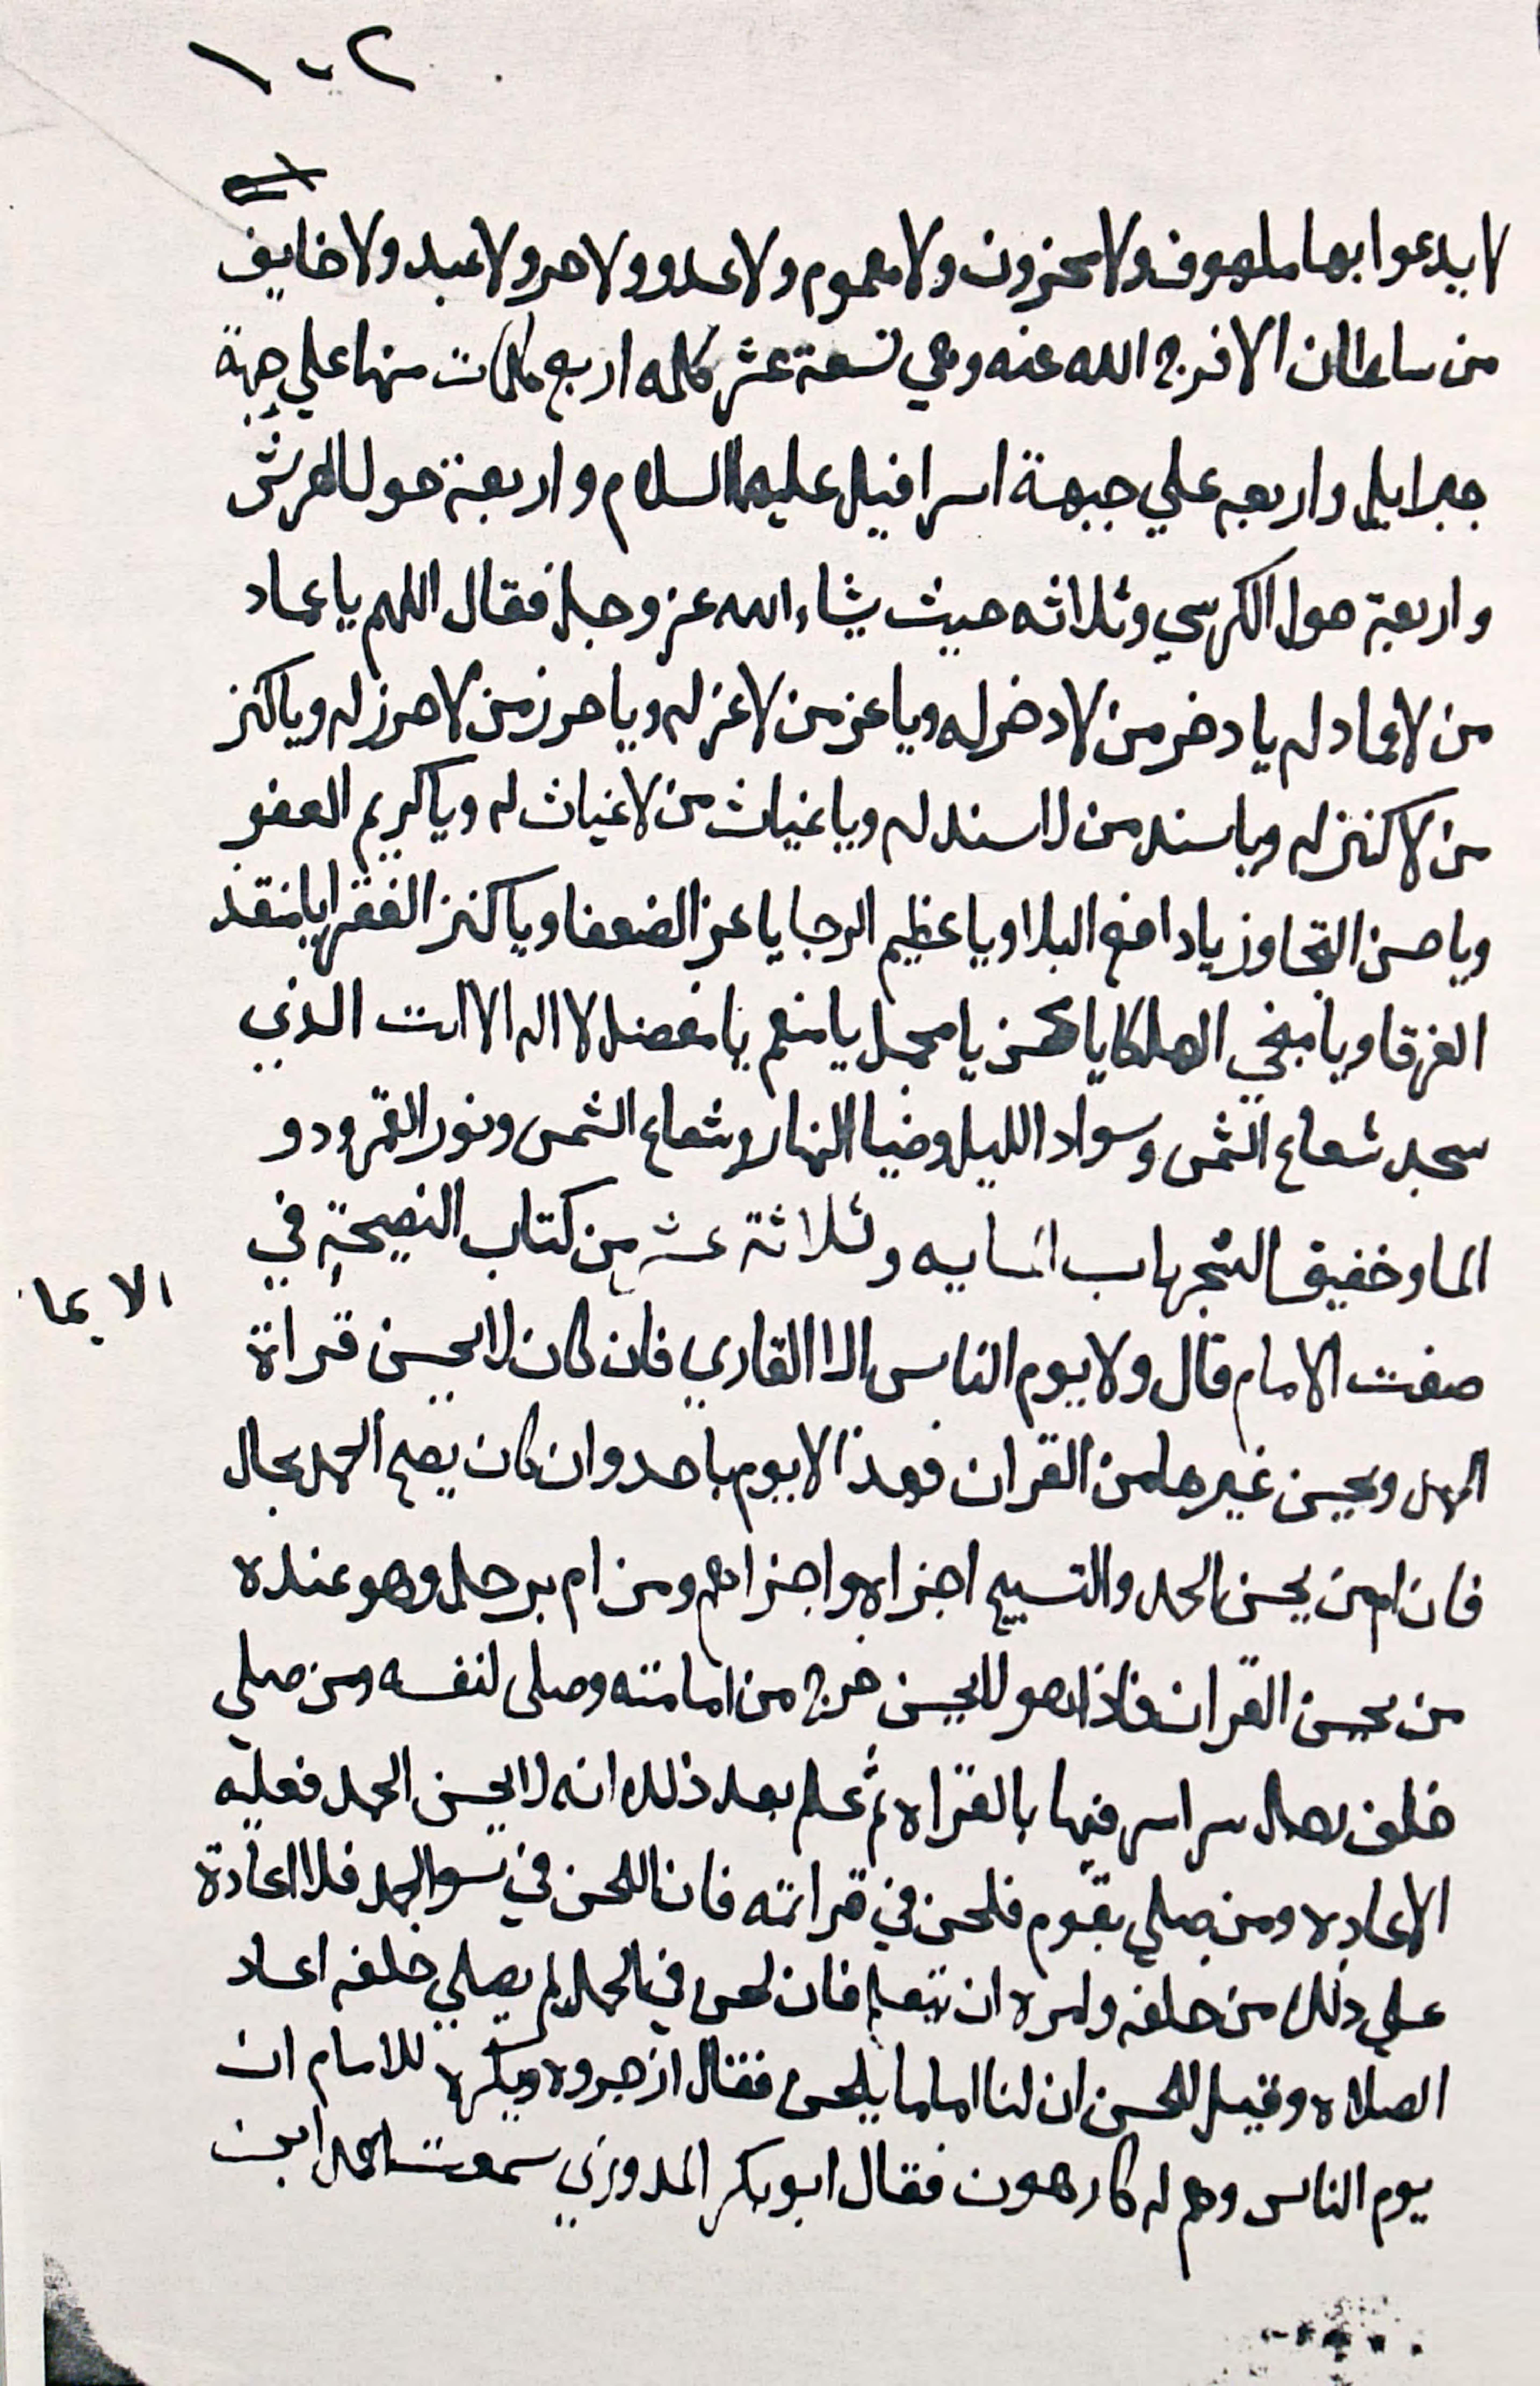 ١٠٢
لا يدعوا بها ملهوف ولا محزون ولا مغموم ولا عدو ولا حر ولا عبد ولا خايف
من سلطان الا فرج الله عنه وهي تسعة عشر كلمه اربع كلمات منها علي جبهة
جبرايل واربعه علي جبهة اسرافيل عليهما السلام واربعة حول العرش
واربعة حول الكرسي وثلاثه حيث يشاء الله عز وجل فقال اللهم يا عماد
من لا عماد له يا دخر من لا دخر له ويا عز من لا عز له ويا حرز من لا حرز له ويا كنز
من لا كنز له ويا سند من لا سند له ويا غياث من لا غياث له ويا كريم العفو
ويا حسن التجاوز يا دافع البلا ويا عظيم الرجا يا عز الضعفا ويا كنز الفقرا يا منقذ
الغرقا ويا منجي الهلكا يا محسن يا مجمل يا منعم يا مفضل لا اله الا انت الذي
سجد شعاع الشمس وسواد الليل وضيا النهار وشعاع الشمس ونور القمر ودو
الما وخفيق الشجر باب المايه وثلاثة عشر من كتاب النصيحة في
الايما
صفت الامام قال ولا يوم الناس الا القاري فان كان لا يحسن قراة
الحمد ويحسن غيرها من القران فهذا لا يوم باحد وان كان يصح الحمد بحال
فان ام من يحسن الحمد والتسبيح اجزاه واجزاهم ومن ام برجل وهو عنده
من يحسن القران فاذا هو لا يحسن خرج من امامته وصلى لنفسه ومن صلي
خلف رجل سراسر فيها بالقراه ثم علم بعد ذلك انه لا يحسن الحمد فعليه
الاعاده ومن صلي بقوم فلحن في قراته فان اللحن في سوا الحمد فلا اعادة
علي ذلك من خلفه وامره ان يتعلم فان لحن في الحمد لم يصلي خلفه اعاد
الصلاه وقيل للحسن ان لنا اماما يلحن فقال ازجروه ويكره للامام ان
يوم الناس وهم له كارهون فقال ابو بكر المدوزي سمعت احمد ابن